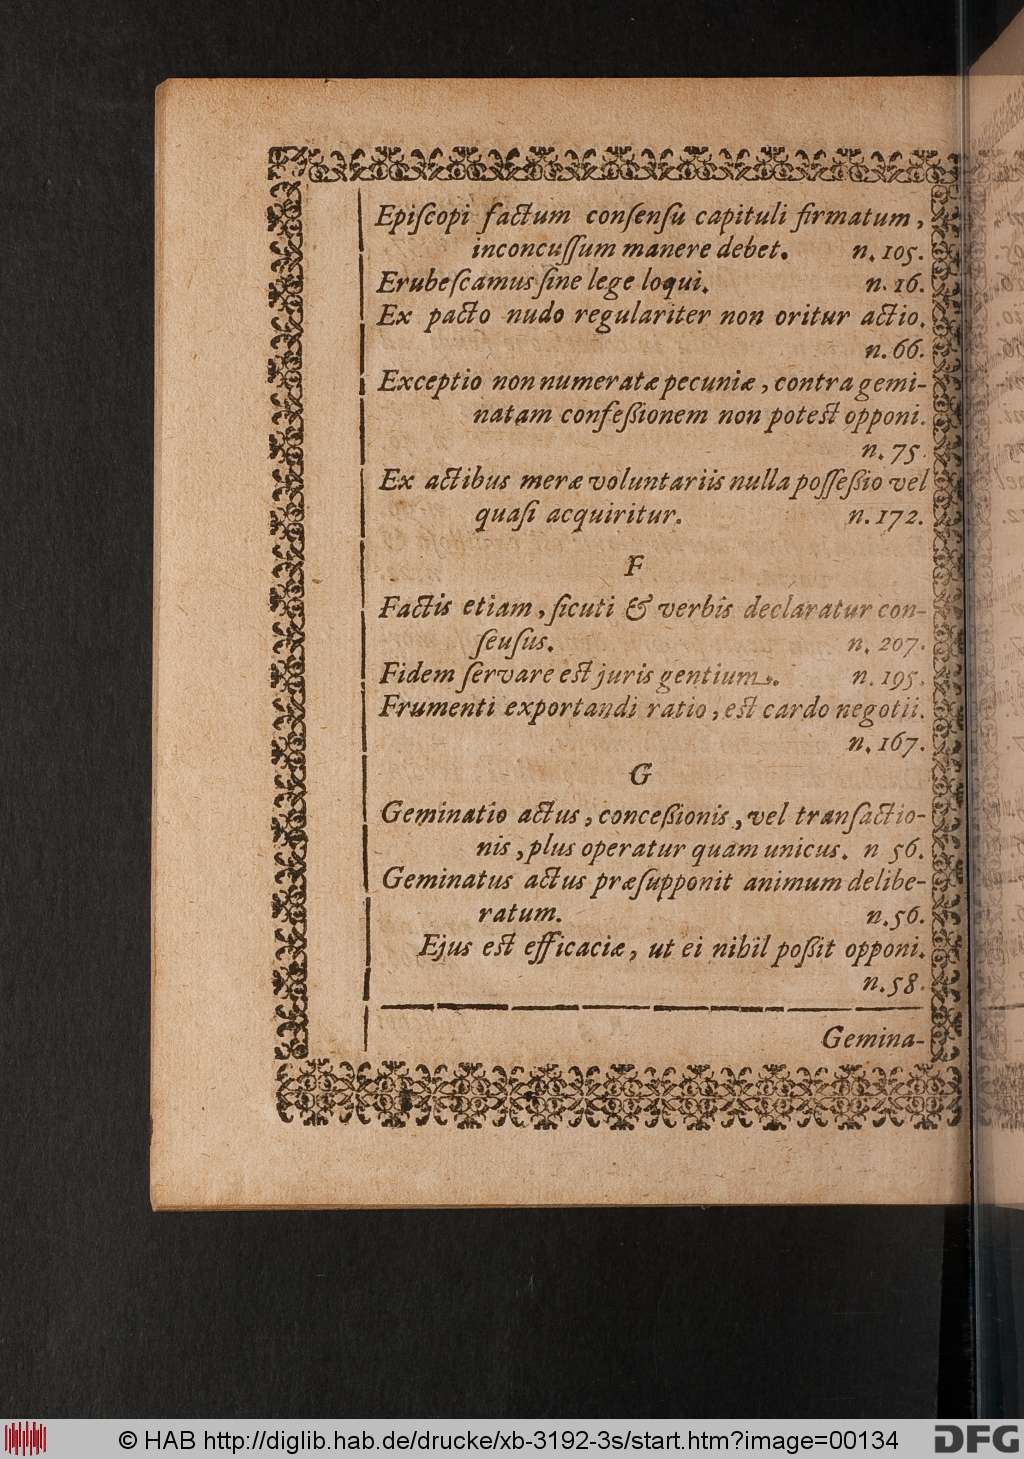 Epiſcopi factum conſenſu capituli firmatum,
inconcuſſum manere debet. n. 105.
Erubeſcamus ſine lege loqui. n. 16.
Ex pacto nudo regulariter non oritur actio.
n. 66.
Exceptio non numeratæ pecuniæ, contra gemi-
natam confeßionem non poteſt opponi.
n. 75.
Ex actibus meræ voluntariis nulla poſſeßio vel
quaſi acquiritur. n. 172.
F
Factis etiam, ſicuti & verbis declaratur con-
ſeuſus. n. 207.
Fidem ſervare eſt juris gentium. n. 195.
Frumenti exportandi ratio, eſt cardo negotii.
n. 167.
G
Geminatio actus, conceßionis, vel tranſactio-
nis, plus operatur quam unicus. n 56.
Geminatus actus præſupponit animum delibe-
ratum. n. 56.
Ejus eſt efficaciæ, ut ei nihil poßit opponi.
n. 58.
Gemina-
© HAB http://diglib.hab.de/drucke/xb-3192-3s/start.htm?image=00134
DFG